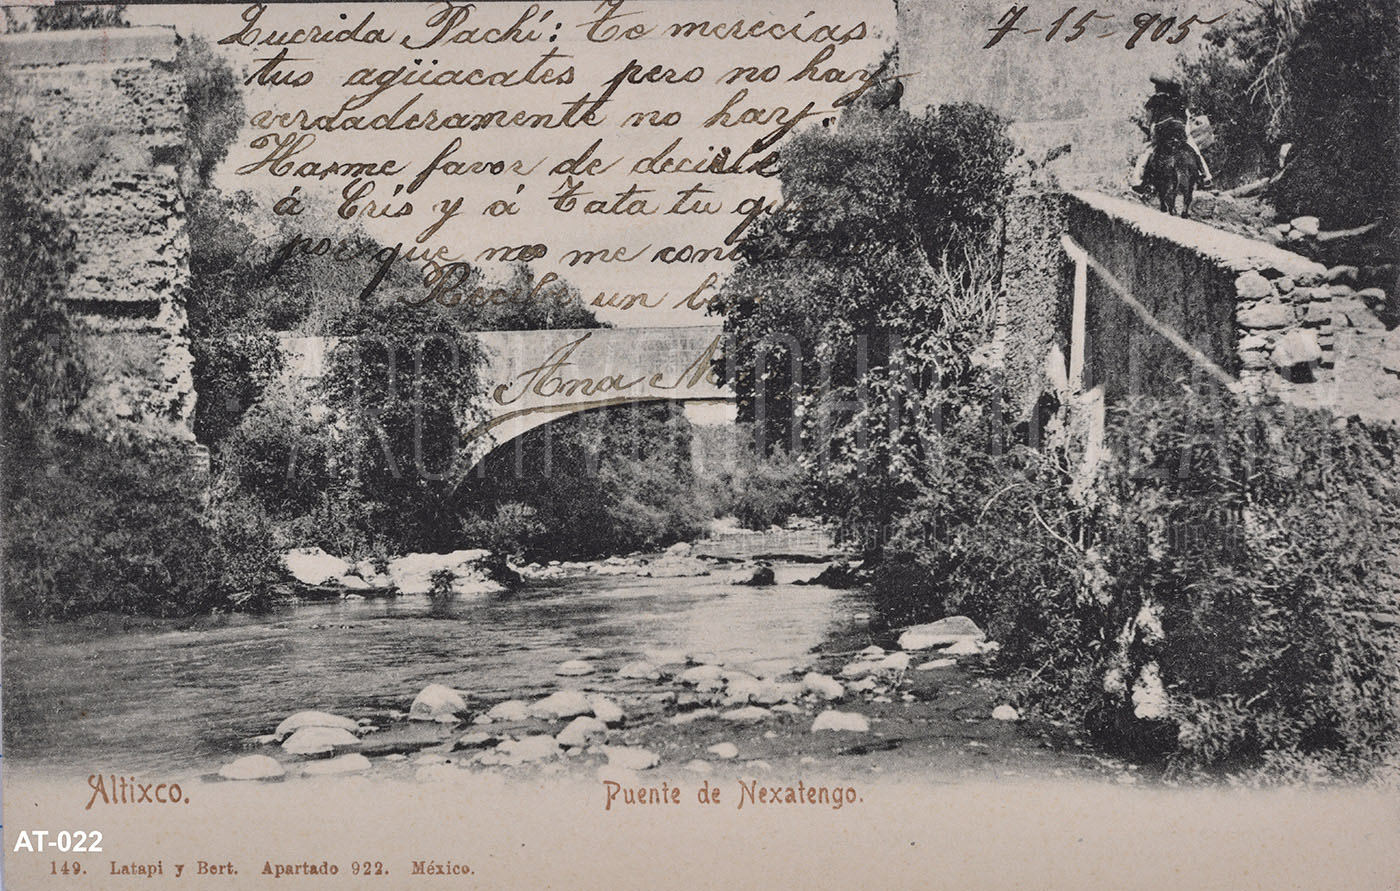 Querida Pachí: Te merecías 7-15-905
tus agüacates pero no hay
verdaderamente no hay.
Hasme favor de decirle
á Cris y á Tata tu
por que no me
Recibe un
Ana
ARCHIVO JOHN O'LEARY
Altixco. Puente de Nexatengo.
AT-022
149. Latapi y Bert. Apartado 922. México.